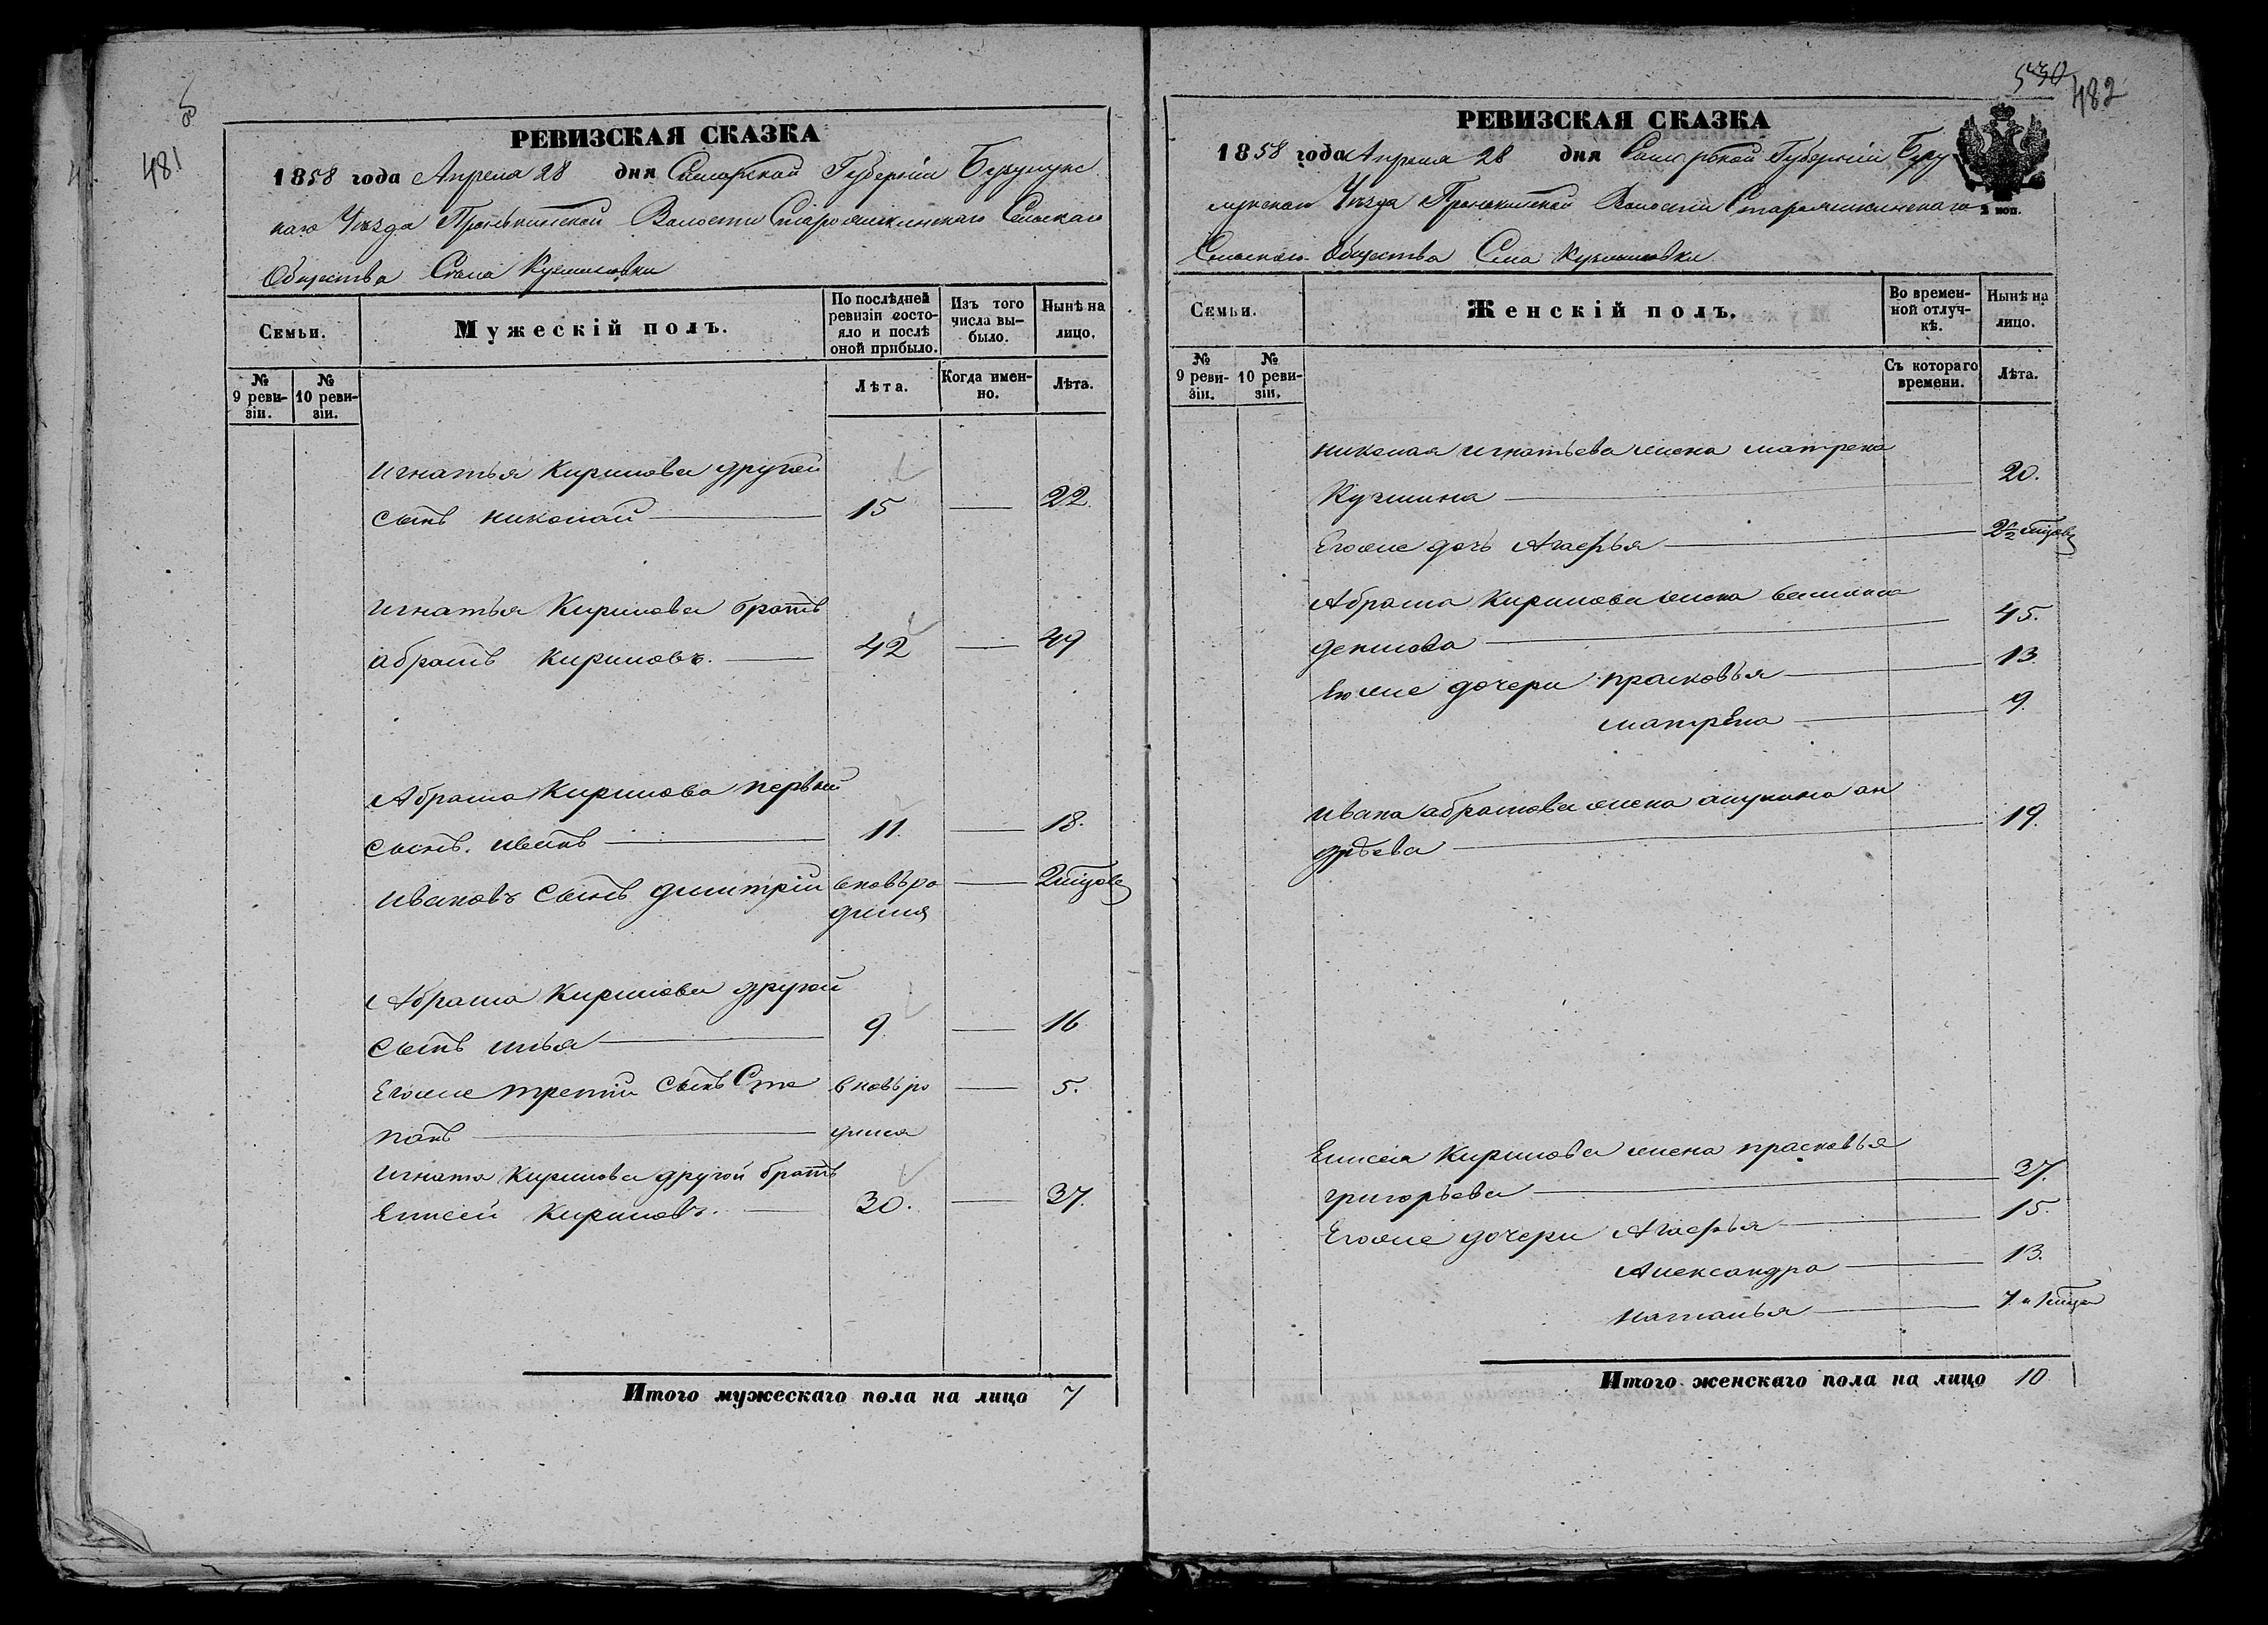 481
РЕВИЗСКАЯ СКАЗКА
1858 года Апреля 28 дня Самарской Губерніи Бузулукс
каго Уѣзда Пронькинской Волости Староямкинскаго Сельскаго
Общества Села
Семьи.
Мужескій полъ.
По послѣдней ревизіи состо-яло и послѣ оной прибыло.
Изъ того числа вы-было.
Нынѣ на лицо.
№ 9 реви-зіи.
№ 10 реви-зіи.
Лѣта.
Когда имен-но.
Лѣта.
Игнатья Кирилова другой
сынъ николай 15 22
Игнатья Кирилова братъ
абрамъ Кириловъ. 42 49
Абрама Кирилова первый
сынъ. иванъ 11. 18.
Ивановъ сынъ дмитрій вновь ро 2 мѣсяцов
дился
Абрама Кирилова другой
сынъ илья 9 16
Егоже третій сынъ Сте вновь ро 5.
панъ дился
Игнатя Кирилова другой братъ
Елисей Кириловъ. 30. 37.
Итого мужескаго пола на лицо 7
530
482
РЕВИЗСКАЯ СКАЗКА
1858 года Апреля 28 дня Самарской Губерніи Бузу
лукскаго Уѣзда Пронькинской Волости Староямкинскаго
2 коп.
Сельскаго Общества Села
Семьи.
Женскій полъ.
Во времен-ной отлуч-кѣ.
Нынѣ на лицо.
№ 9 реви-зіи.
№ 10 реви-зіи.
Съ котораго времени.
Лѣта.
николая игнатьева жена матрена
20.
Егоже дочь Агафья
Абрама Кирилова жена
денисова 45.
Егоже дочери прасковья 13.
матрена 9.
Ивана абрамова жена акулина ан
дреева 19.
Елисея Кирилова жена прасковья
григорьева 37.
Егоже дочери Агафья 15.
Александра 13.
наталья
Итого женскаго пола на лицо 10